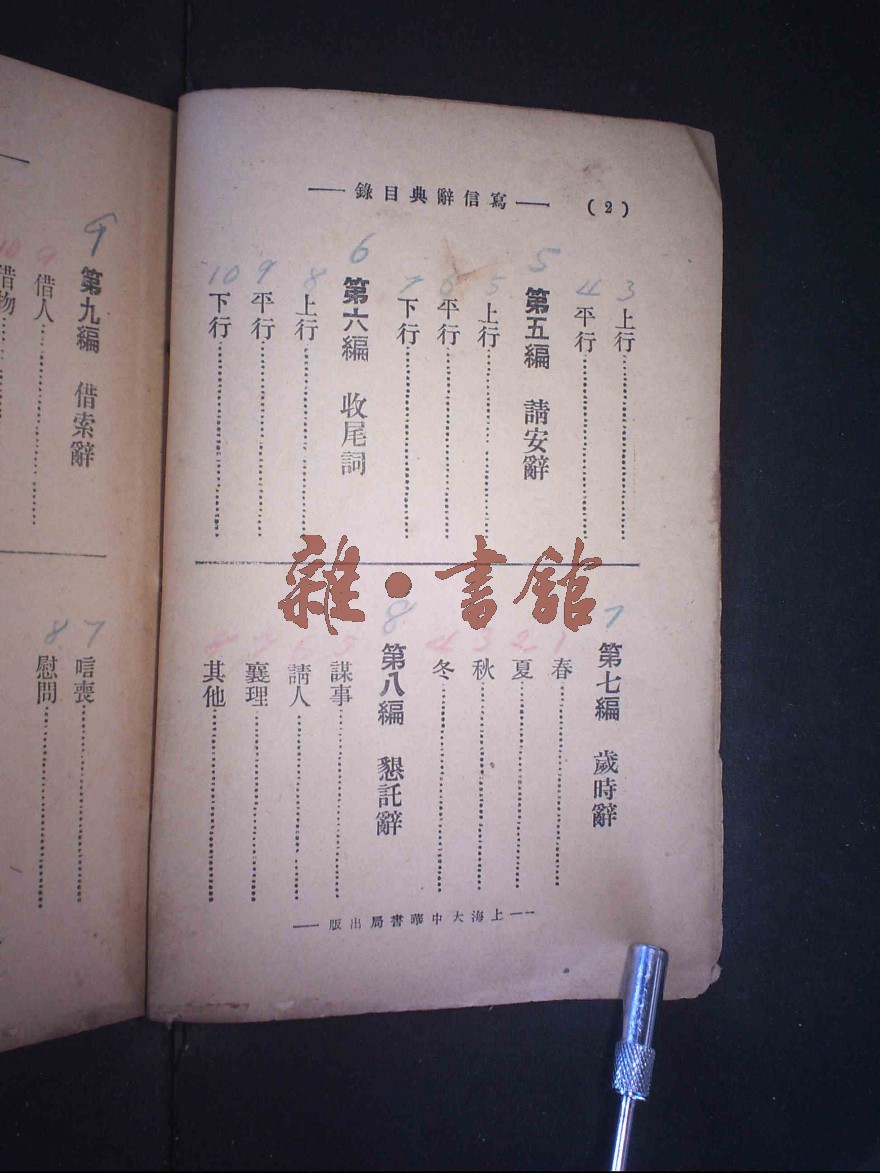 (2) ——寫信辭典目錄——
3 上行
4 平行
5 第五編 請安辭
5 上行
6 平行
7 下行
6 第六編 收尾詞
8 上行
9 平行
10 下行
7 第七編 歲時辭
1 春
2 夏
3 秋
4 冬
8 第八編 懇託辭
5 謀事
6 請人
7 襄理
8 其他
——上海大中華書局出版——
9 第九編 借索辭
9 借人
10 借物
7 唁喪
8 慰問
雜·書館